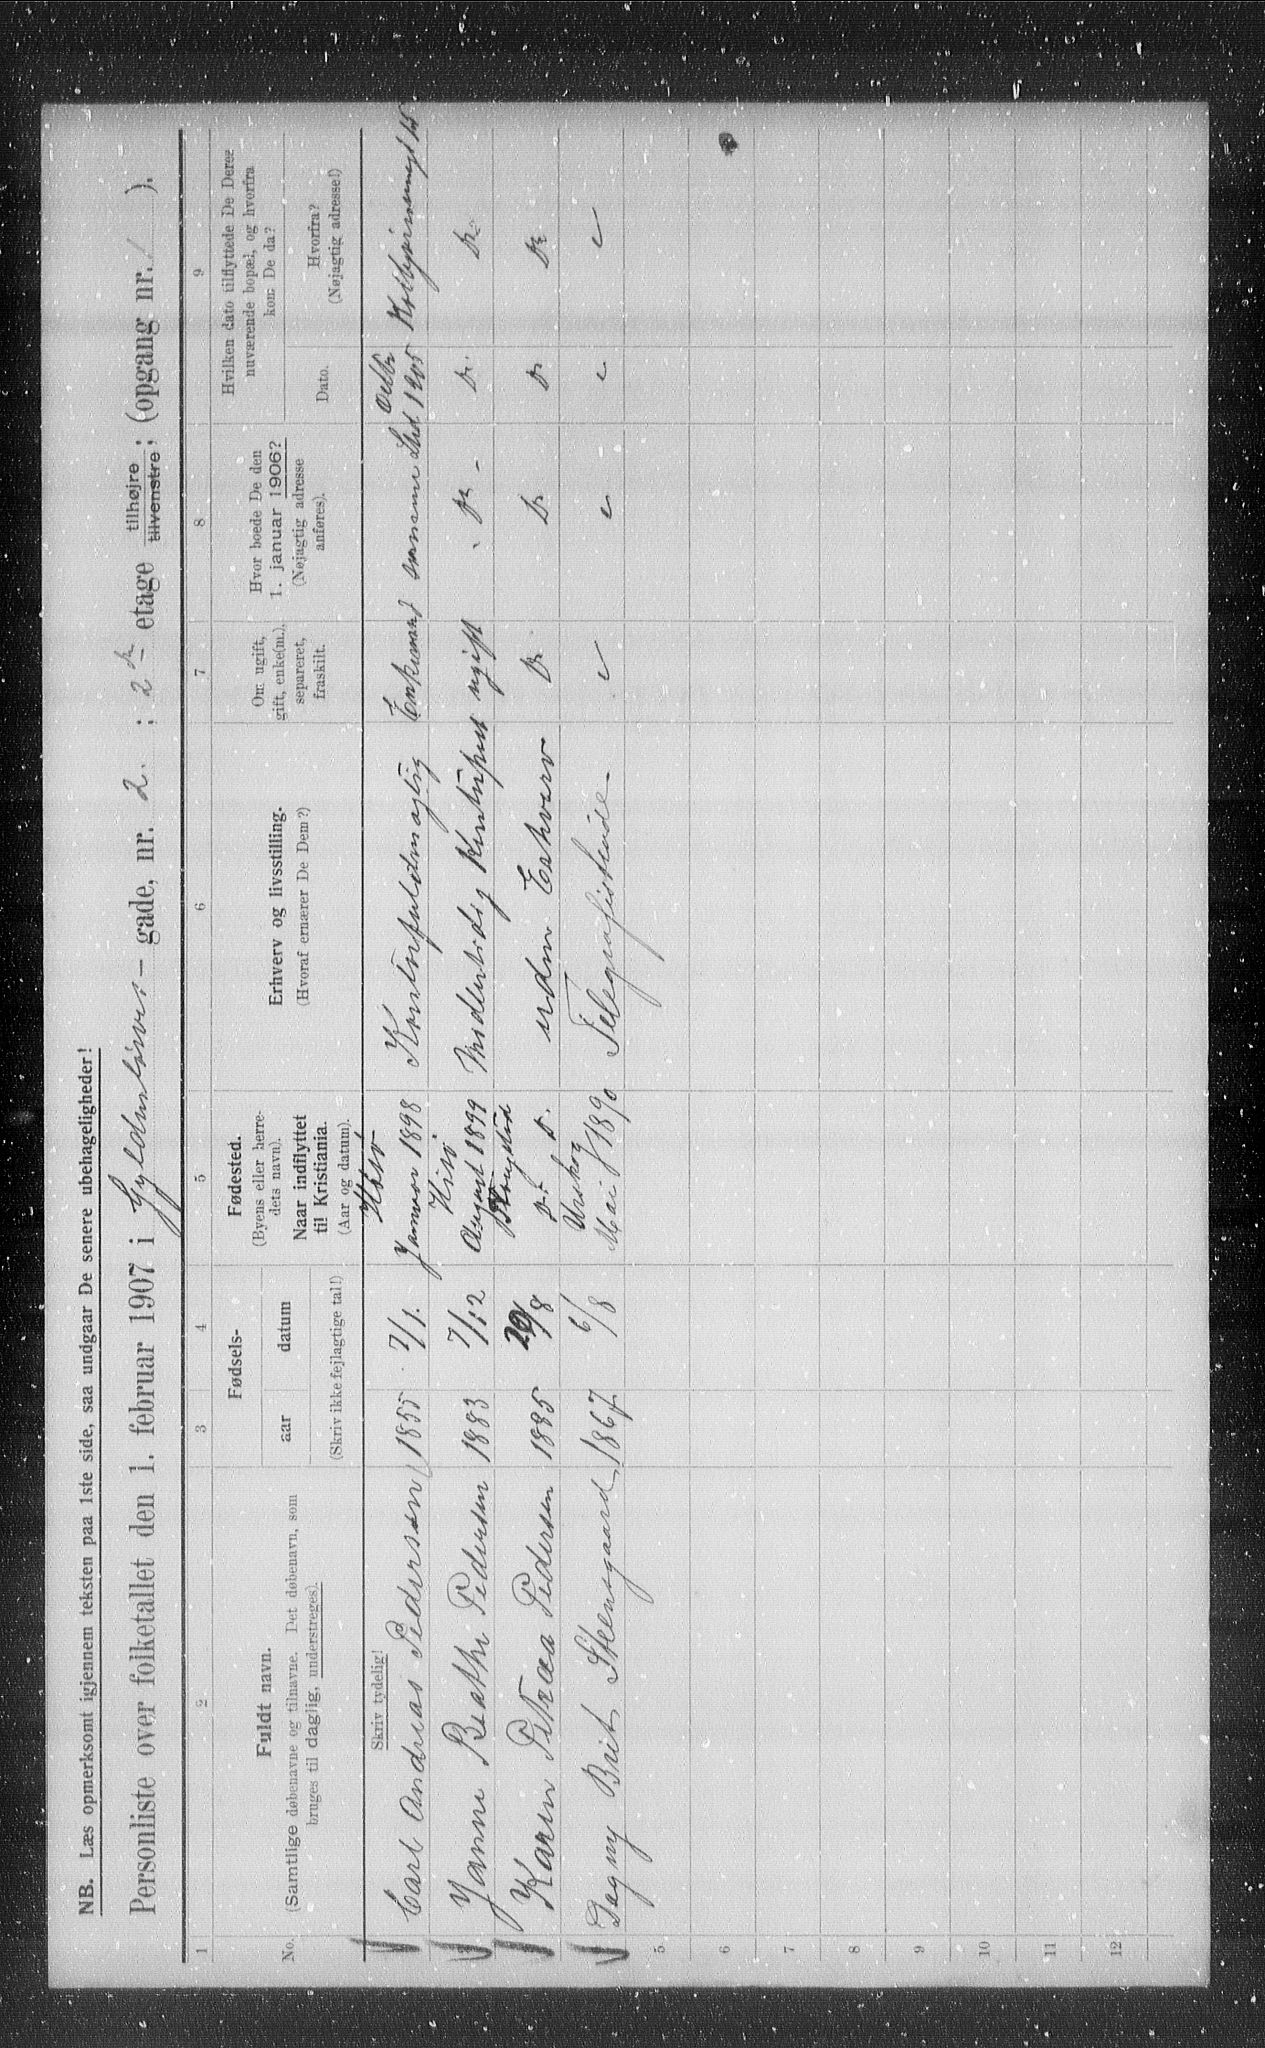 NB. Læs opmerksomt igjennem teksten paa 1ste side, saa undgaar De senere ubehageligheder!
Personliste over folketallet den 1. februar 1907 i Gyldenløves- gade, nr. 2. ; 2den etage tilhøjre tilvenstre ; (opgang nr. ).
1 2 3 4 5 6 7 8 9
No.
Fuldt navn.
(Samtlige døbenavne og tilnavne. Det døbenavn, som
bruges til daglig, understreges).
Fødsels-
aar datum
(Skriv ikke fejlagtige tal!)
Fødested.
(Byens eller herre-
dets navn).
Naar indflyttet
til Kristiania.
(Aar og datum).
Erhverv og livsstilling.
(Hvoraf ernærer De Dem?)
Om ugift,
gift, enke(m.),
separeret,
fraskilt.
Hvor boede De den
1. januar 1906?
(Nøjagtig adresse
anføres).
Hvilken dato tilflyttede De Deres
nuværende bopæl, og hvorfra
kom De da?
Dato.
Hvorfra?
(Nøjagtig adresse!)
Skriv tydelig!
Carl Andreas Pedersen 1855 7/1. Hisø Januar 1898 Kontorfuldmægtig Enkemand samme Sted Oktbr 1905
Janna Beathe Pedersen 1883 7/12 Hisø August 1899 Midlertidig Kontorpost ugift Do. Do. Do.
Karen Petrea Pedersen 1885 20/8 Do. Do. uden Erhverv Do. Do Do Do
Dagny Brit Steensgaard 1867 6/8 Urskog Mai 1890 Telegrafistinde
5
6
7
8
9
10
11
12